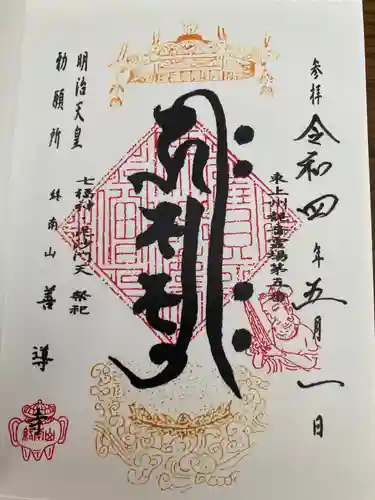 参拝 令和四年五月一日
東上州観音霊場第五番
七福神毘沙門天 祭祀
明治天皇
勅願所
終南山 善導寺
終南山